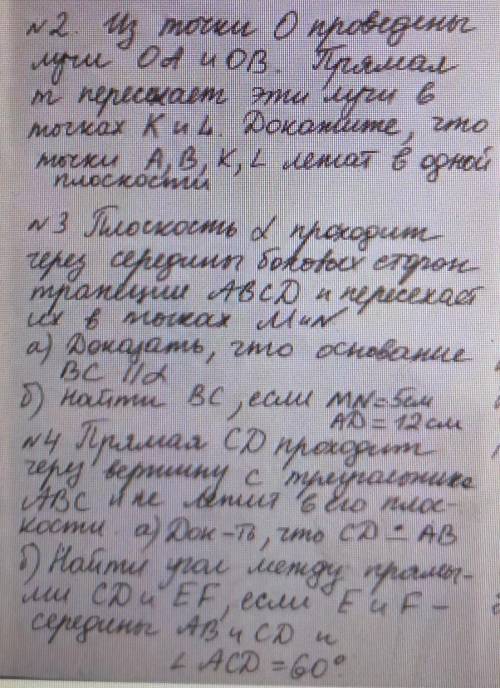 №2. Из точки О проведены
лучи ОА и ОВ. Прямая
m пересекает эти лучи в
точках К и L. Докажите, что
точки А, В, К, L лежат в одной
плоскости
№3 Плоскость α проходит
через середины боковых сторон
трапеции ABCD и пересекает
их в точках М и N
а) Доказать, что основание
BC || α
б) Найти BC, если MN = 5см
AD = 12 см
№4 Прямая CD проходит
через вершину С треугольника
ABC и не лежит в его плос-
кости. а) Док-ть, что CD ∸ AB
б) Найти угол между прямы-
ми CD и EF, если E и F -
середины AB и CD и
∠ ACD = 60°